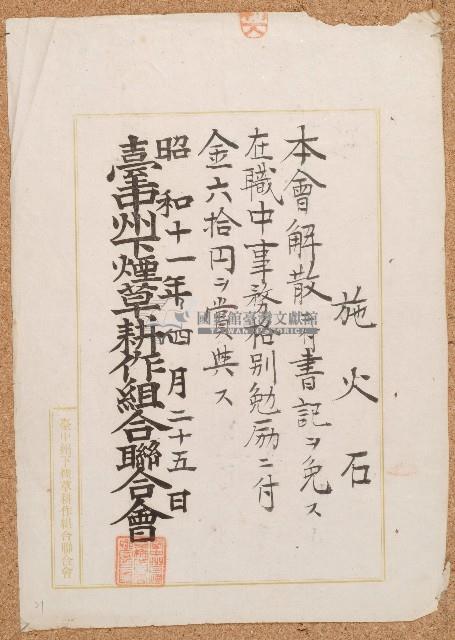 施火石
本會解散ニ付書記ヲ免ス
在職中事務格別勉励ニ付
金六拾円ヲ賞与ス
昭和十一年四月二十五日
臺中州下煙草耕作組合聯合會
臺中州下煙草耕作組合聯合會
國史館臺灣文獻館